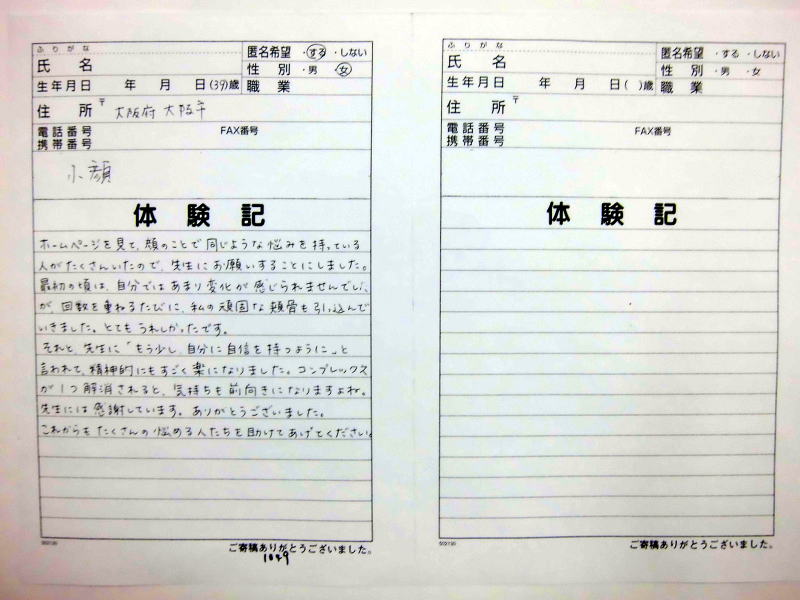 ふりがな
氏 名
匿名希望 ・する ・しない
性 別 ・男 ・女
生年月日 年 月 日(39)歳 職業
住 所 〒 大阪府 大阪市
電話番号 FAX番号
携帯番号
小顔
体 験 記
ホームページを見て、顔のことで同じような悩みを持っている
人がたくさんいたので、先生にお願いすることにしました。
最初の頃は、自分ではあまり変化が感じられませんでした
が、回数を重ねるたびに、私の頑固な頬骨も引っ込んで
いきました。とてもうれしかったです。
それと、先生に「もう少し、自分に自信を持つように」と
言われて、精神的にもすごく楽になりました。コンプレックス
が1つ解消されると、気持ちも前向きになりますよね。
先生には感謝しています。ありがとうございました。
これからもたくさんの悩める人たちを助けてあげてください。
ご寄稿ありがとうございました。
1029
ふりがな
氏 名
匿名希望 ・する ・しない
性 別 ・男 ・女
生年月日 年 月 日( )歳 職業
住 所 〒
電話番号 FAX番号
携帯番号
体 験 記
ご寄稿ありがとうございました。